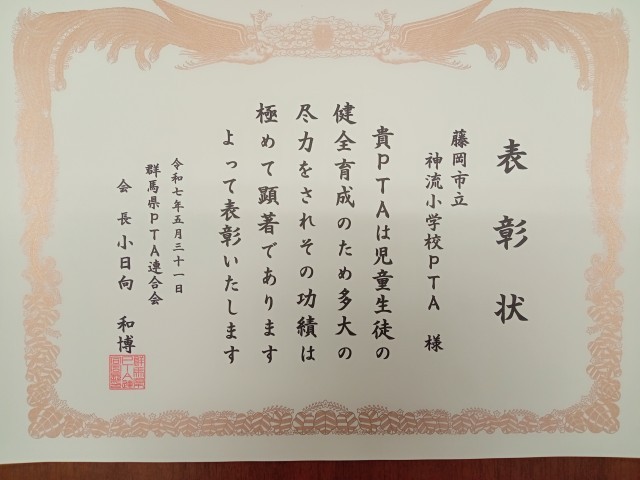 表彰状
藤岡市立
神流小学校PTA 様
貴PTAは児童生徒の
健全育成のため多大の
尽力をされその功績は
極めて顕著であります
よって表彰いたします
令和七年五月三十一日
群馬県PTA連合会
会長 小日向 和博